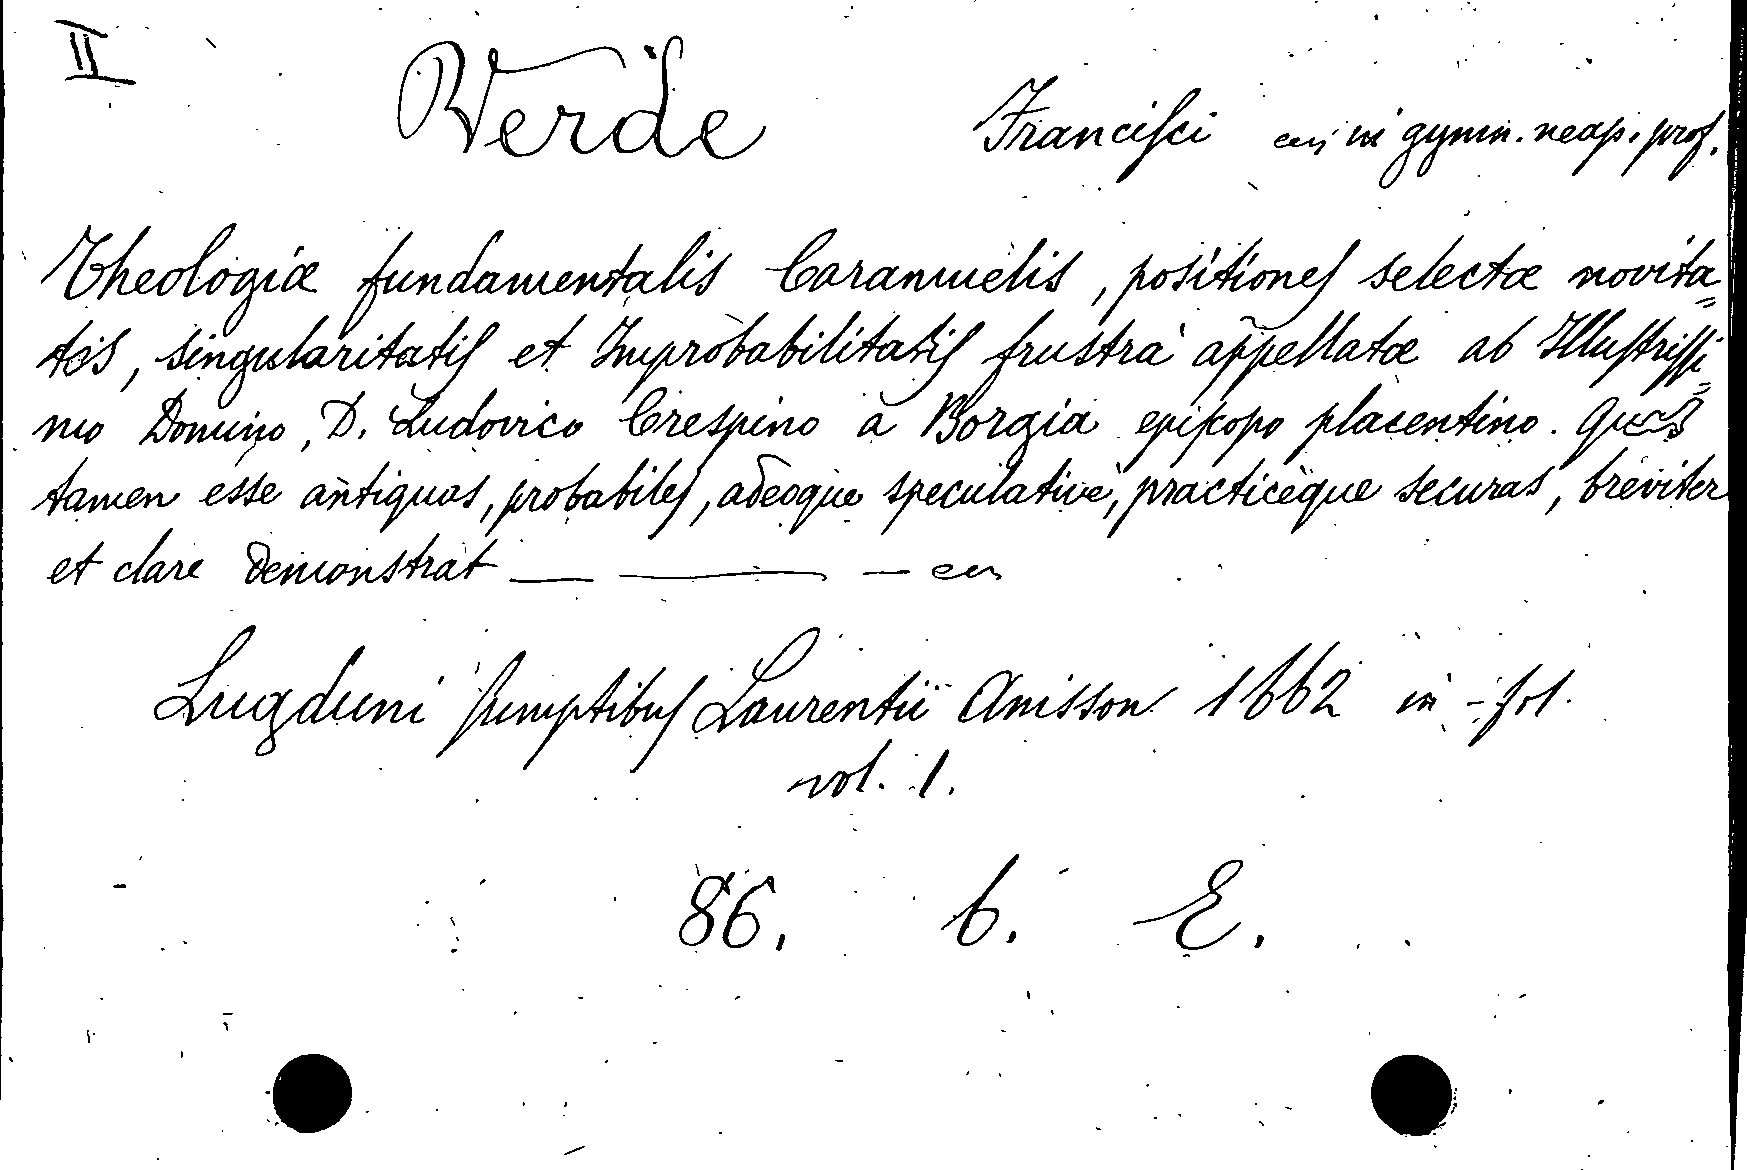 II
Verde Francisci in gymn. neap. prof.
Theologiæ fundamentalis Caramuelis, positiones selectæ novita=
tis, singularitatis et Improbabilitatis frustrà appellatæ ab Illustrissi=
mo Domino, D. Ludovico Crespino à Borgia episcopo placentino. Quas
tamen esse antiquas, probabiles, adeoque speculativè, practicèque securas, breviter
et clare demonstrat
Lugduni sumptibus Laurentii Anisson 1662 in-fol.
vol. 1.
86. b. E.